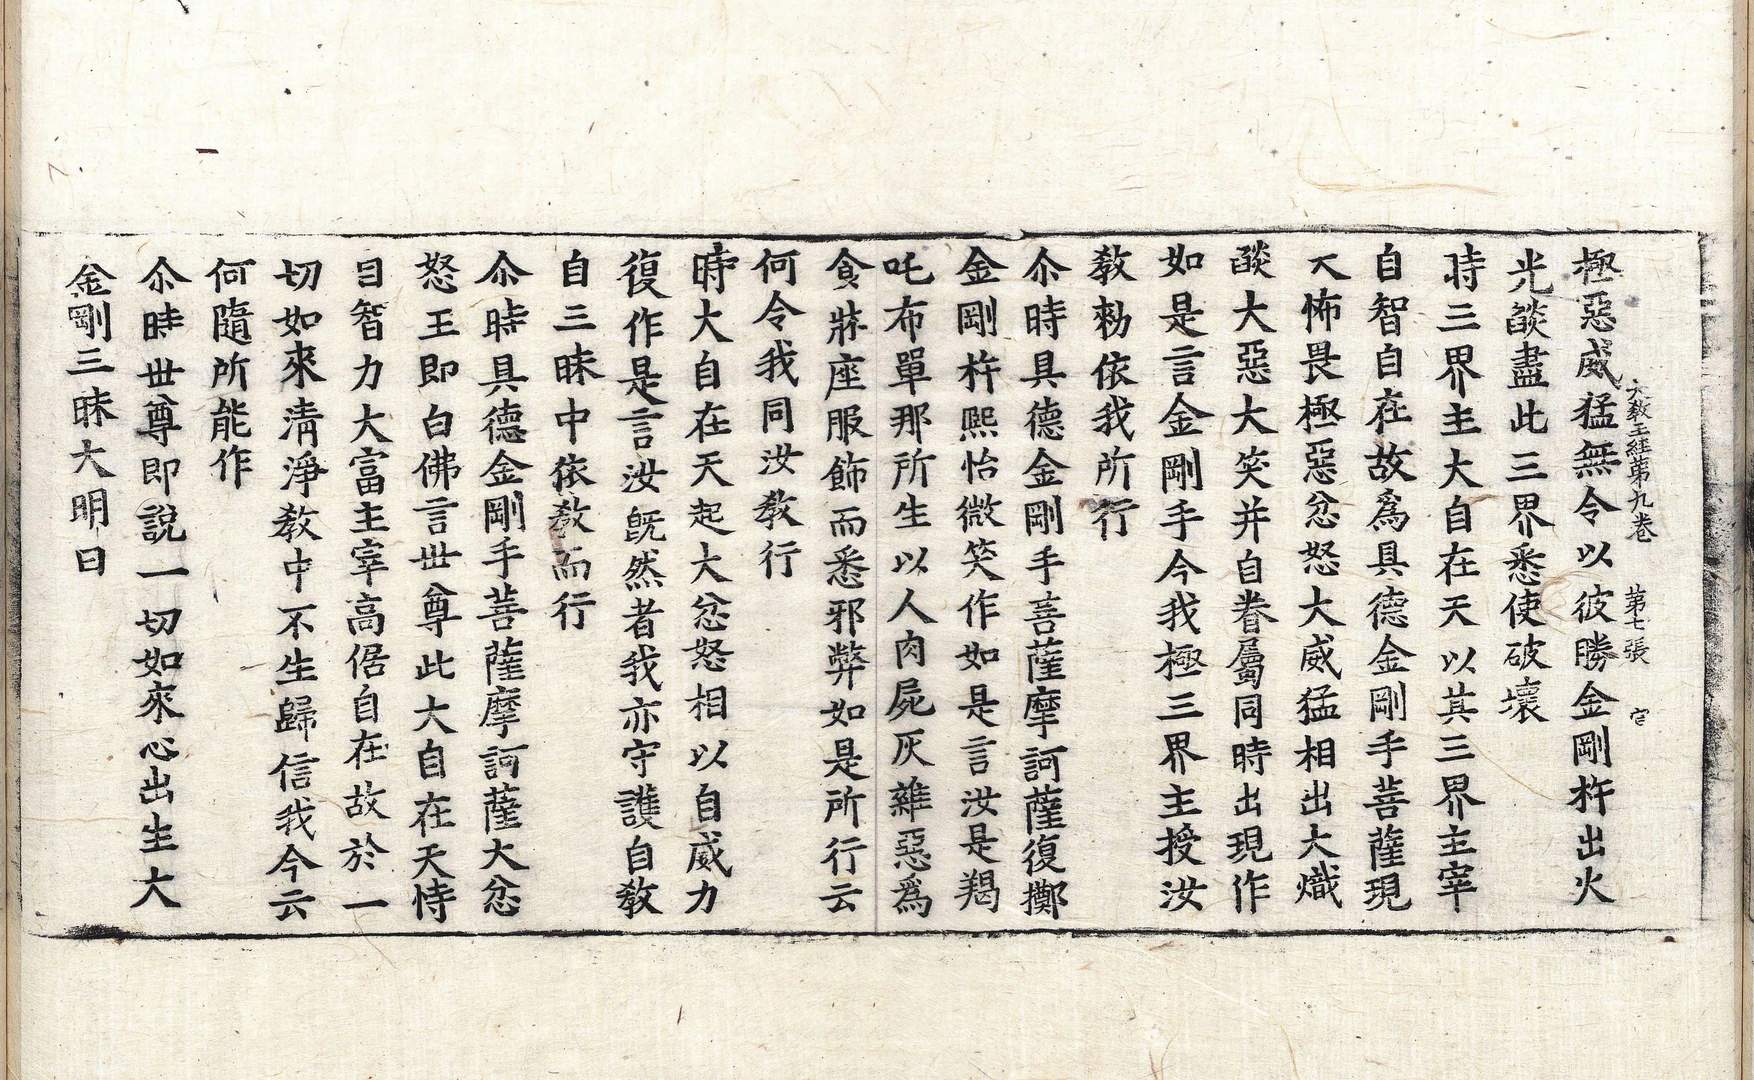 大教王經第九卷　第七張　官
極惡威猛無令以彼勝金剛杵出火
光燄盡此三界悉使破壞
時三界主大自在天以其三界主宰
自智自在故爲具德金剛手菩薩現
大怖畏極惡忿怒大威猛相出大熾
燄大惡大笑并自眷屬同時出現作
如是言金剛手今我極三界主授汝
敎勑依我所行
尒時具德金剛手菩薩摩訶薩復擲
金剛杵熙怡微笑作如是言汝是羯
吒布單那所生以人肉屍灰雜惡爲
食牀座服飾而悉邪弊如是所行云
何令我同汝敎行
時大自在天起大忿怒相以自威力
復作是言汝旣然者我亦守護自敎
自三昧中依敎而行
尒時具德金剛手菩薩摩訶薩大忿
怒王即白佛言世尊此大自在天恃
自智力大富主宰高倨自在故於一
切如來清淨敎中不生歸信我今云
何隨所能作
尒時世尊即說一切如來心出生大
金剛三昧大明曰